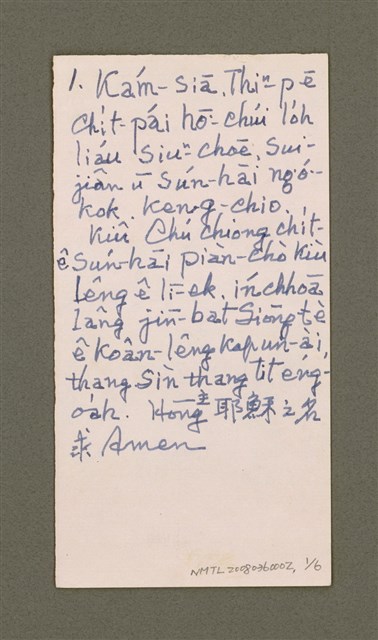 1. Kám-siā Thiⁿ-pē
chit-pái hō-chúi lo̍h
liáu siuⁿ-chōe, Sui-
jiân ū Sún-hāi ngó͘-
kok, keng-chio.
Kiû Chú chiong chit-
ê Sún-hāi piàn-chò kiù
lêng ê lī-ek, ín chhoā
lâng jīn-bat Siōng tè
ê koân-lêng kap un-ài,
thang sìn thang tit éng-
oa̍h. Hōng 主耶穌之名
求 Amen
NMTL20080360002, 1/6